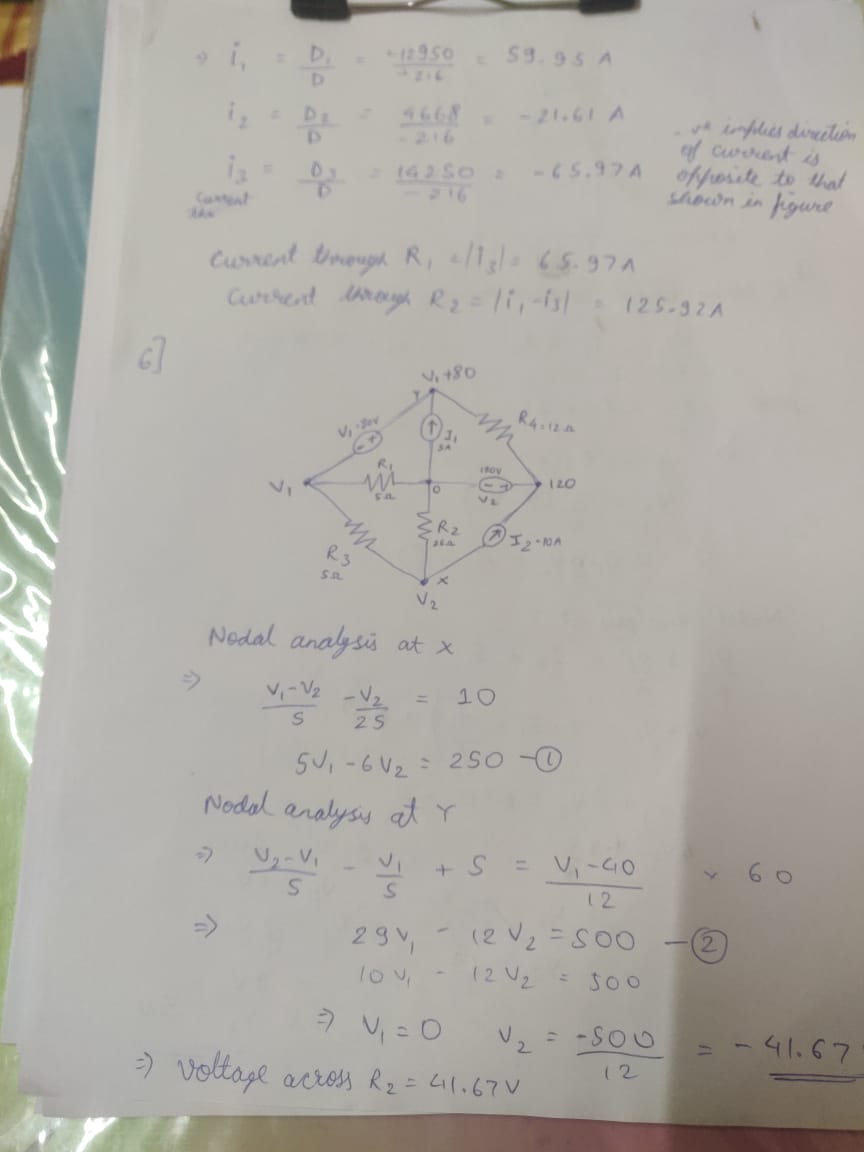 ⇒ i₁ = D₁/D = -12950/-216 = 59.95 A
i₂ = D₂/D = 4668/-216 = -21.61 A
i₃ = D₃/D = 14250/-216 = -65.97A
Current
-ve implies direction
of current is
opposite to that
shown in figure
Current through R₁ = |i₃| = 65.97A
Current through R₂ = |i₁-i₃| = 125.92A
6]
V₁+80
Y
V₁=80V
- +
I₁
5A
R₄=12Ω
V₁
R₁
5Ω
0
120V
- +
V₂
120
R₂
25Ω
I₂=10A
R₃
5Ω
X
V₂
Nodal analysis at X
⇒ (V₁-V₂)/5 -V₂/25 = 10
5V₁-6V₂ = 250 -①
Nodal analysis at Y
⇒ (V₂-V₁)/5 - V₁/5 + 5 = (V₁-40)/12 × 60
⇒ 29V₁ - 12V₂ = 500 -②
10V₁ - 12V₂ = 500
⇒ V₁ = 0 V₂ = -500/12 = -41.67
⇒ voltage across R₂ = 41.67V